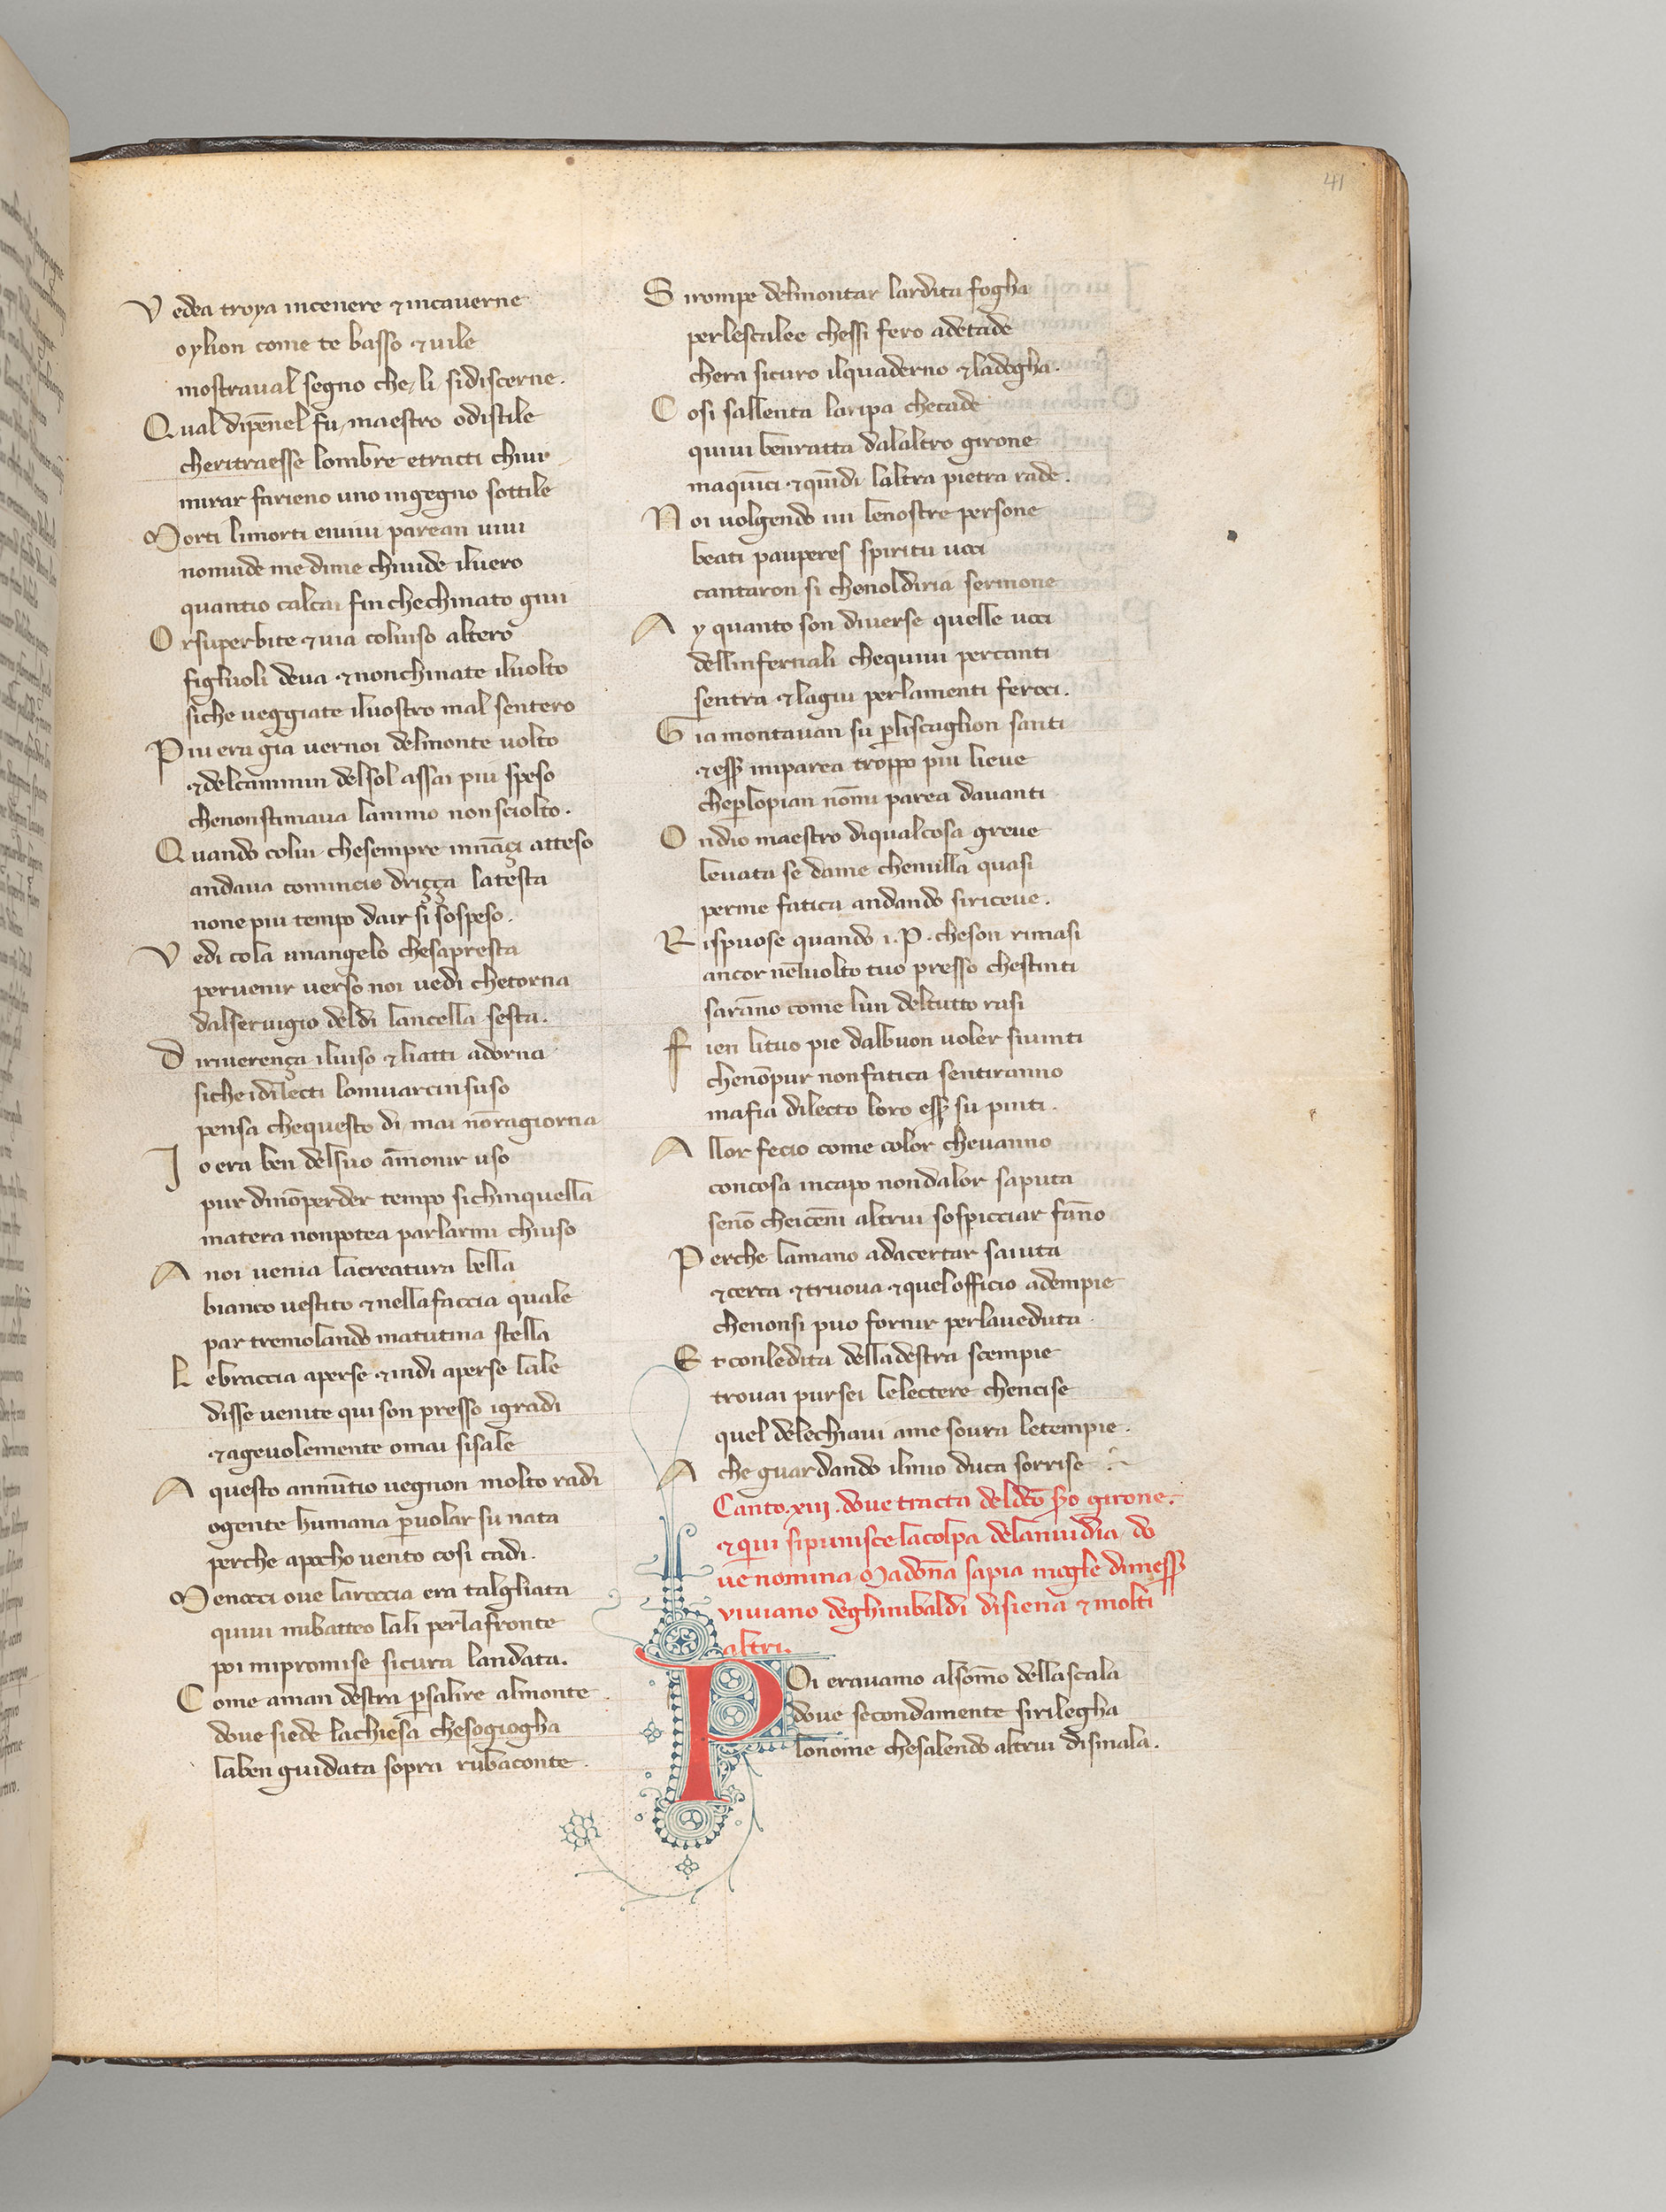 41
Vedea troya incenere & incauerne
oylion come te basso & uile
mostraual segno che li sidiscerne.
Qual dipēnel fu maestro odistile
cheritraesse lombre etracti chiui
mirar farieno uno ingegno sottile
Morti limorti eiuiui parean uiui
nonuide me dime chiuide iluero
quantio calcai fin chechinato giui
Orsuperbite & uia coluiso altero
figluoli deua & nonchinate iluolto
siche ueggiate iluostro mal sentero
Piu era gia uernoi delmonte uolto
& delcammin delsol assai piu speso
chenonstimaua lanimo non sciolto.
Quando colui chesempre innāçi atteso
andaua comincio driçça latesta
none piu tempo dair si sospeso.
Vedi cola unangelo chesapresta
peruenir uerso noi uedi chetorna
dalseruigio deldi lancella sesta.
Diriuerença iluiso & liatti adorna
siche idilecti loinuiarcinsuso
pensa chequesto di mai nōragiorna
Io era ben delsuo āmonir uso
pur dinōperder tempo sichinquella
matera nonpotea parlarmi chiuso
A noi uenia lacreatura bella
bianco uestito & nellafaccia quale
par tremolando matutina stella
Lebraccia aperse & indi aperse lale
disse uenite qui son presso igradi
& ageuolemente omai sisale
A questo annūtio uegnon molto radi
ogente humana ꝑuolar su nata
perche apocho uento cosi cadi.
Menocci oue laroccia era talgliata
quiui mibatteo lali perlafronte
poi mipromise sicura landata.
Come aman destra ꝑsalire almonte
doue siede lachiesa chesogiogha
laben guidata sopra rubaconte.
Sirompe delmontar lardita fogha
perlescalee chessi fero adetade
chera sicuro ilquaderno & ladogha.
Cosi sallenta laripa checade
quiui benratta dalaltro girone
maquīci & quīdi laltra pietra rade.
Noi uolgendo iui lenostre persone
beati pauperes spiritu uoci
cantaron si chenoldiria sermone
Ay quanto son diuerse quelle uoci
dellinfernali chequiui percanti
sentra & lagiu perlamenti feroci.
Gia montauan su ꝑliscaglion santi
& esser miparea troppo piu lieue
cheꝑlopian nōmi parea dauanti
Ondio maestro diqualcosa greue
leuata se dame chenulla quasi
perme fatica andando siriceue.
Rispuose quando i .P. cheson rimasi
ancor neluolto tuo presso chestinti
sarāno come lun deltutto rasi
Fien lituo pie dalbuon uoler siuinti
chenōpur nonfatica sentiranno
mafia dilecto loro esser su pinti.
Allor fecio come color cheuanno
concosa incapo nondalor saputa
senō cheicēni altrui sospicciar fāno
Perche lamano adacertar saiuta
& cerca & truoua & quelofficio adempie
chenonsi puo fornir perlaueduta.
Et conledita delladestra scempie
trouai pursei lelectere chencise
quel delechiaui ame soura letempie.
Ache guardando ilmio duca sorrise
Canto .xiij. doue tracta deldcō so girone.
& qui sipunisce lacolpa delanuidia do
ue nomina Madōna sapia mogle dimess
viuiano deghinibaldi disiena & molti
altri.
Poi erauamo alsomō dellascala
doue secondamente sirilegha
lonome chesalendo altrui dismala.